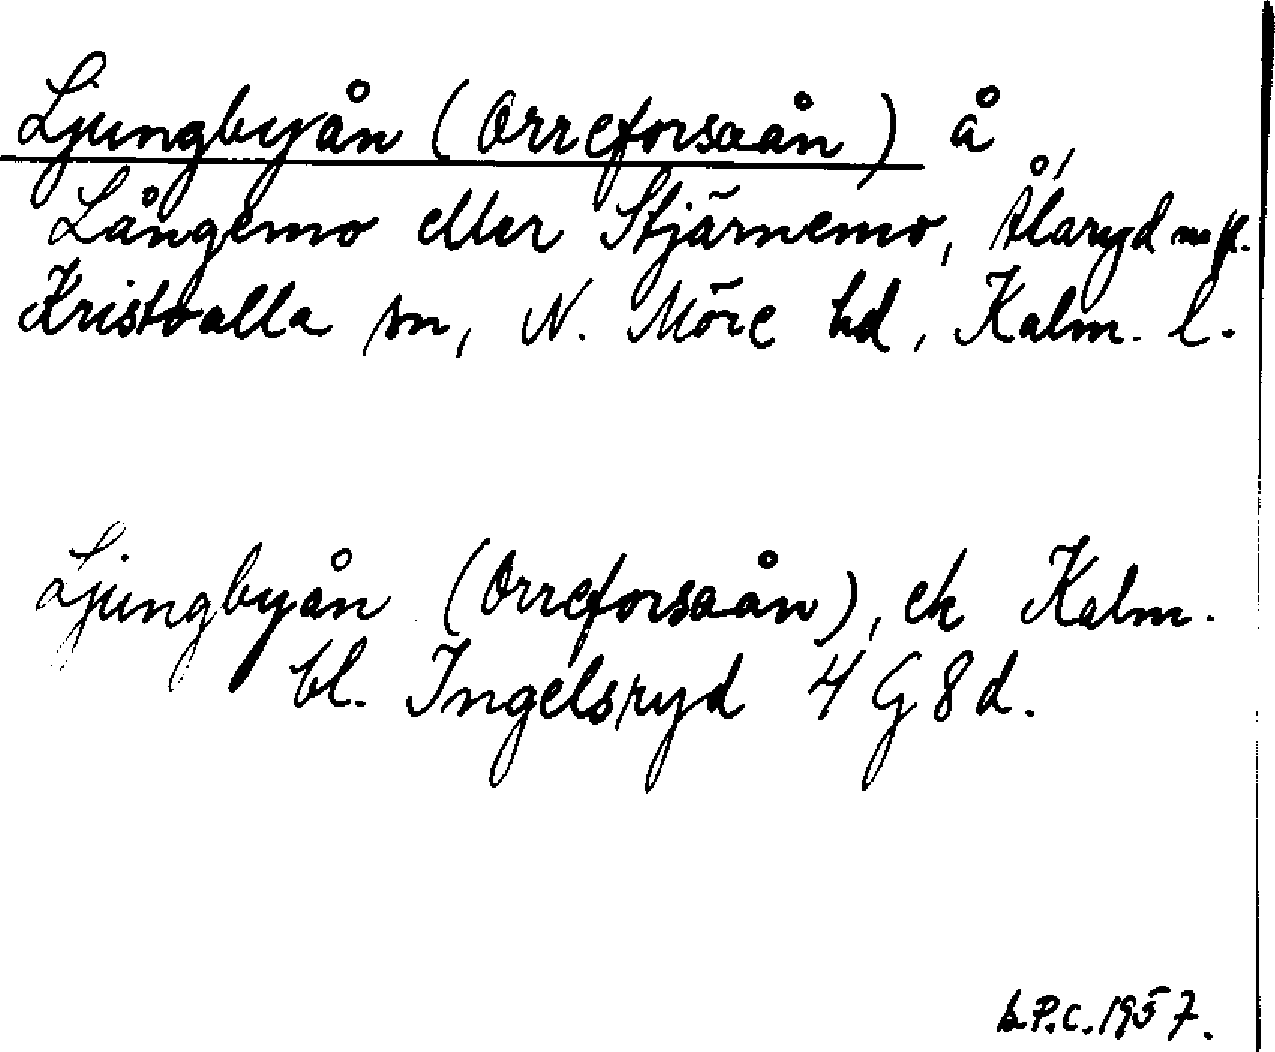 Ljungbyån (Orreforsaån) å,
Långemo eller Stjärnemo, Ålaryd m fl.
Kristvalla sn, N. Möre hd, Kalm. l.
Ljungbyån (Orreforsaån), ek Kalm.
bl. Ingelsryd 4 G 8 d.
b.P.C. 1957.